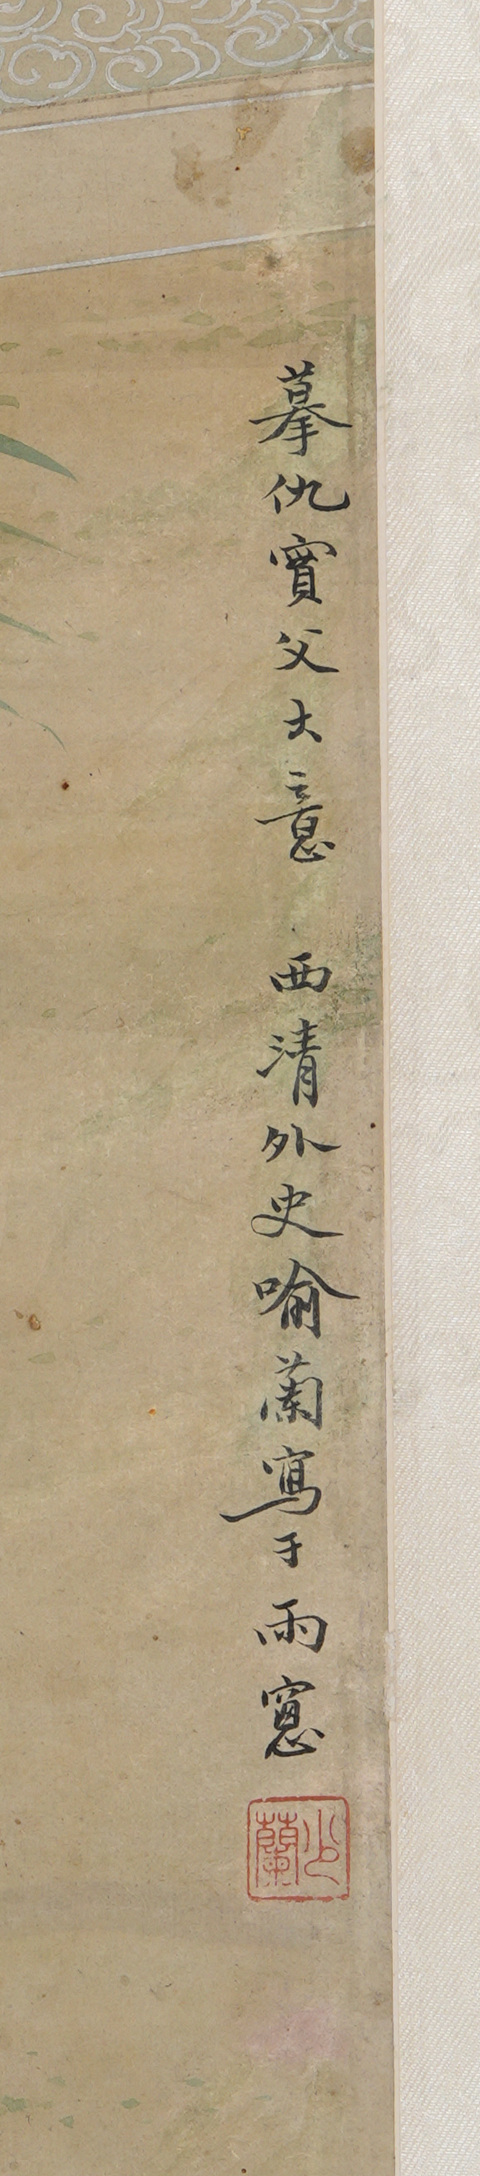 摹仇實父大意 西清外史喻蘭寫于雨窻
少蘭